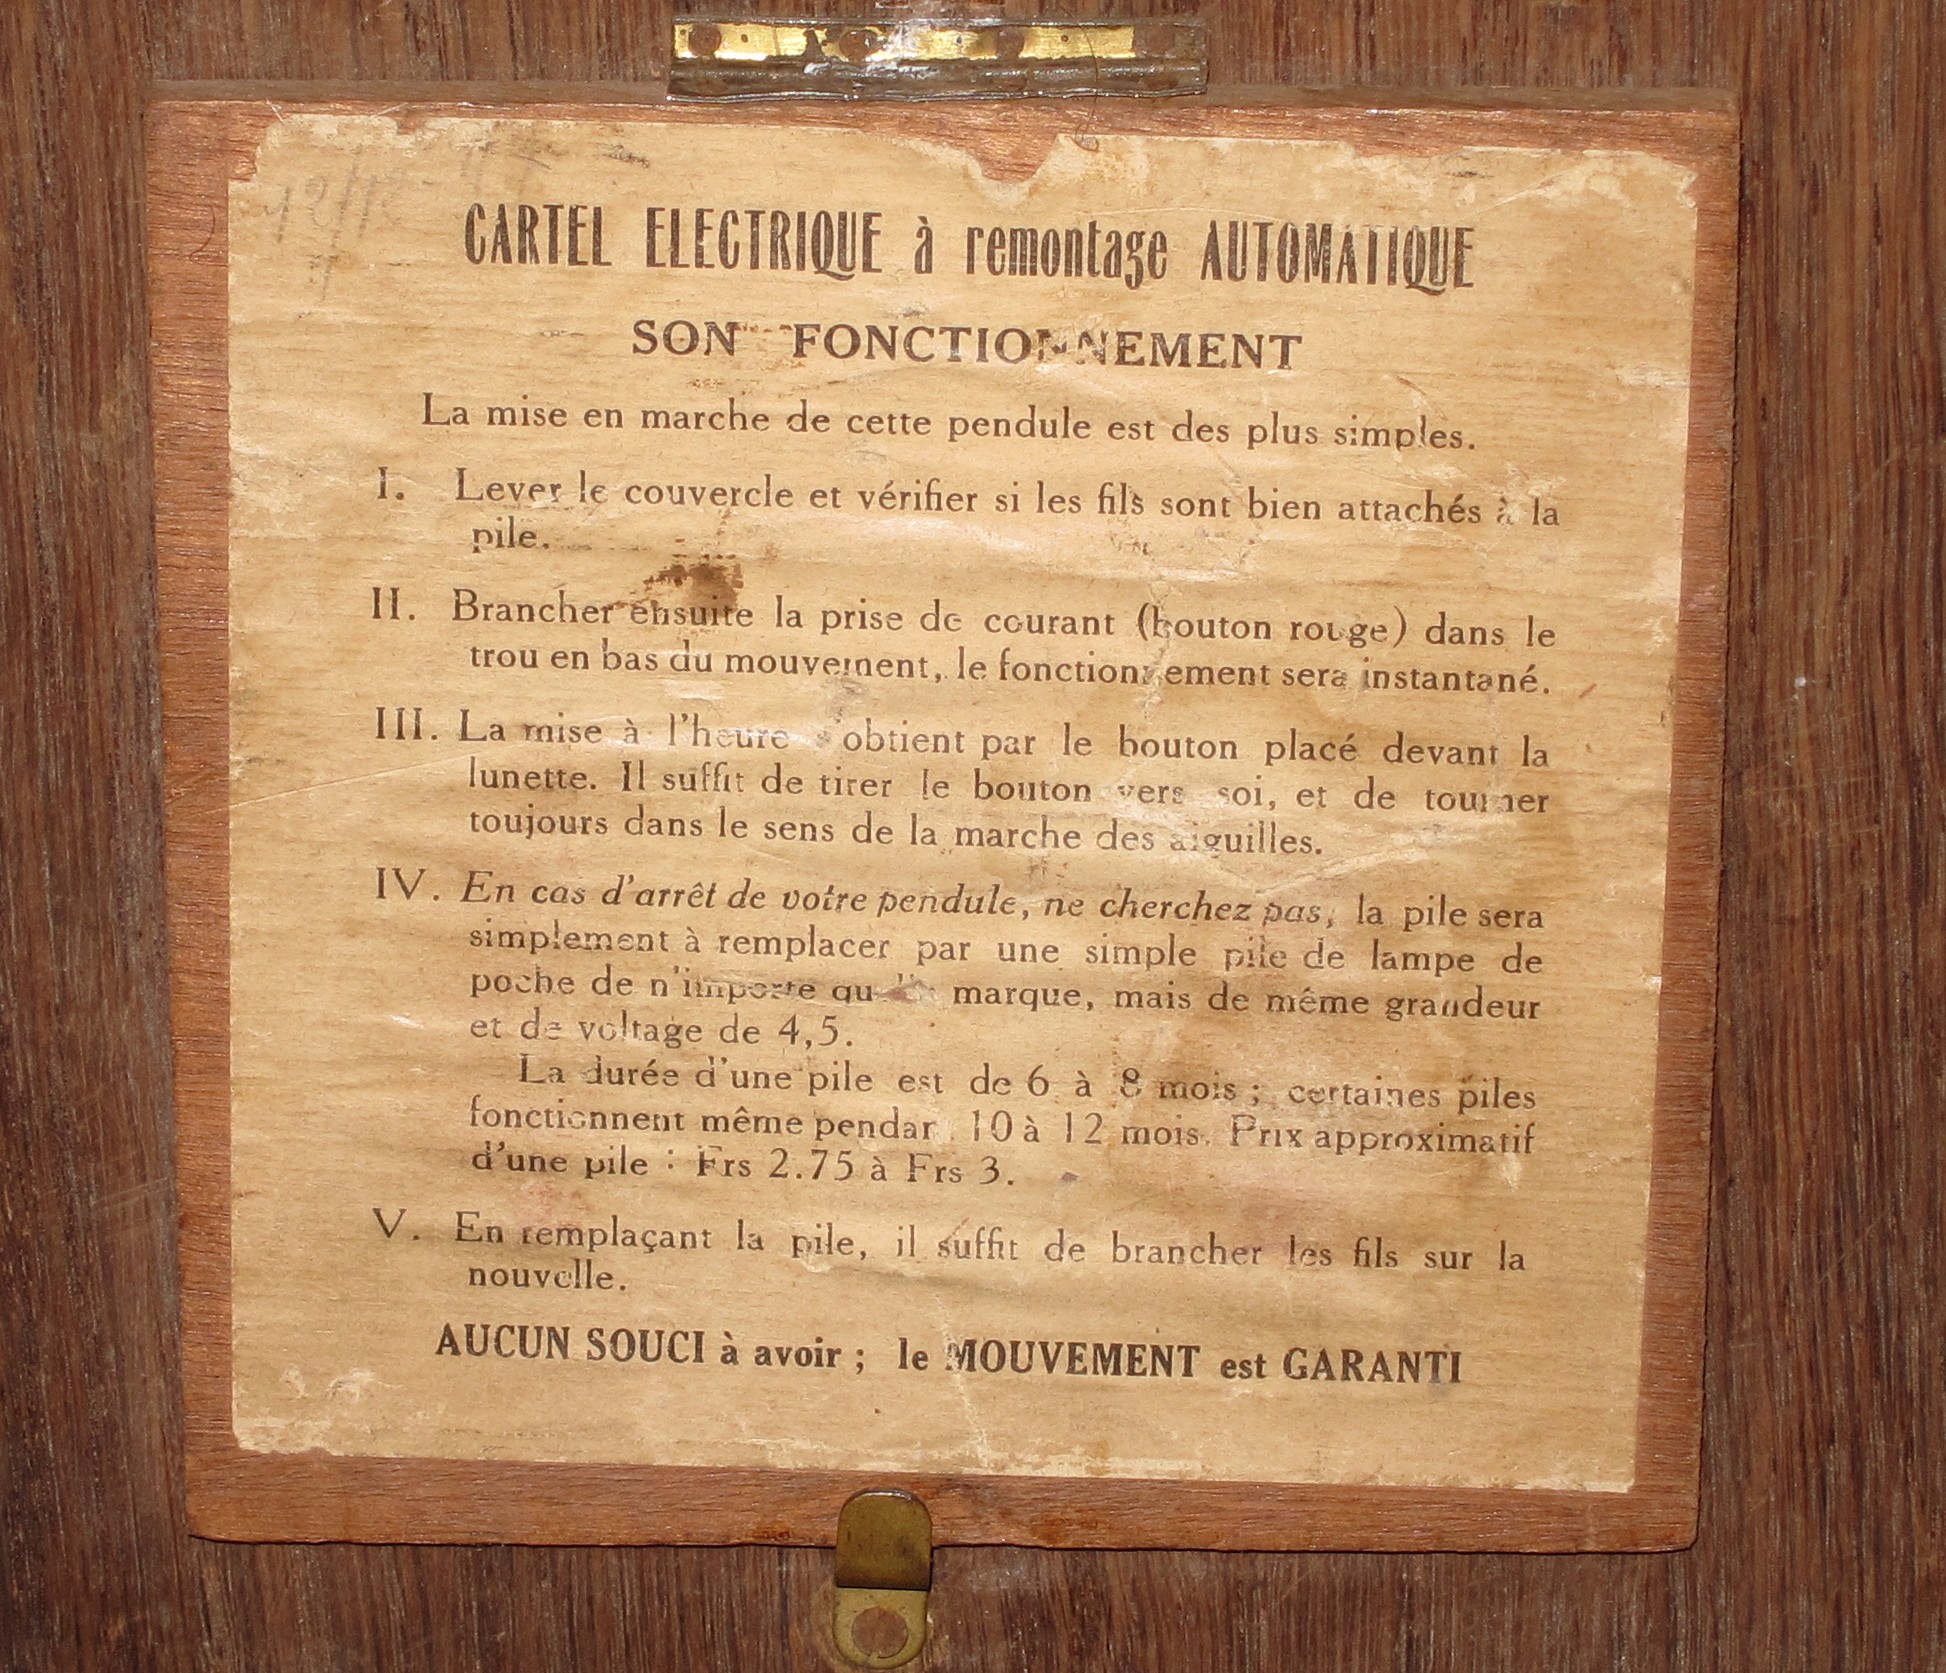 CARTEL ELECTRIQUE à remontage AUTOMATIQUE
SON FONCTIONNEMENT
La mise en marche de cette pendule est des plus simples.
I. Lever le couvercle et vérifier si les fils sont bien attachés à la
pile.
II. Brancher ensuite la prise de courant (bouton rouge) dans le
trou en bas du mouvement, le fonctionnement sera instantané.
III. La mise à l'heure s'obtient par le bouton placé devant la
lunette. Il suffit de tirer le bouton vers soi, et de tourner
toujours dans le sens de la marche des aiguilles.
IV. En cas d'arrêt de votre pendule, ne cherchez pas, la pile sera
simplement à remplacer par une simple pile de lampe de
poche de n'importe marque, mais de même grandeur
et de voltage de 4,5.
La durée d'une pile est de 6 à 8 mois ; certaines piles
fonctionnent même pendant 10 à 12 mois. Prix approximatif
d'une pile : Frs 2.75 à Frs 3.
V. En remplaçant la pile, il suffit de brancher les fils sur la
nouvelle.
AUCUN SOUCI à avoir ; le MOUVEMENT est GARANTI